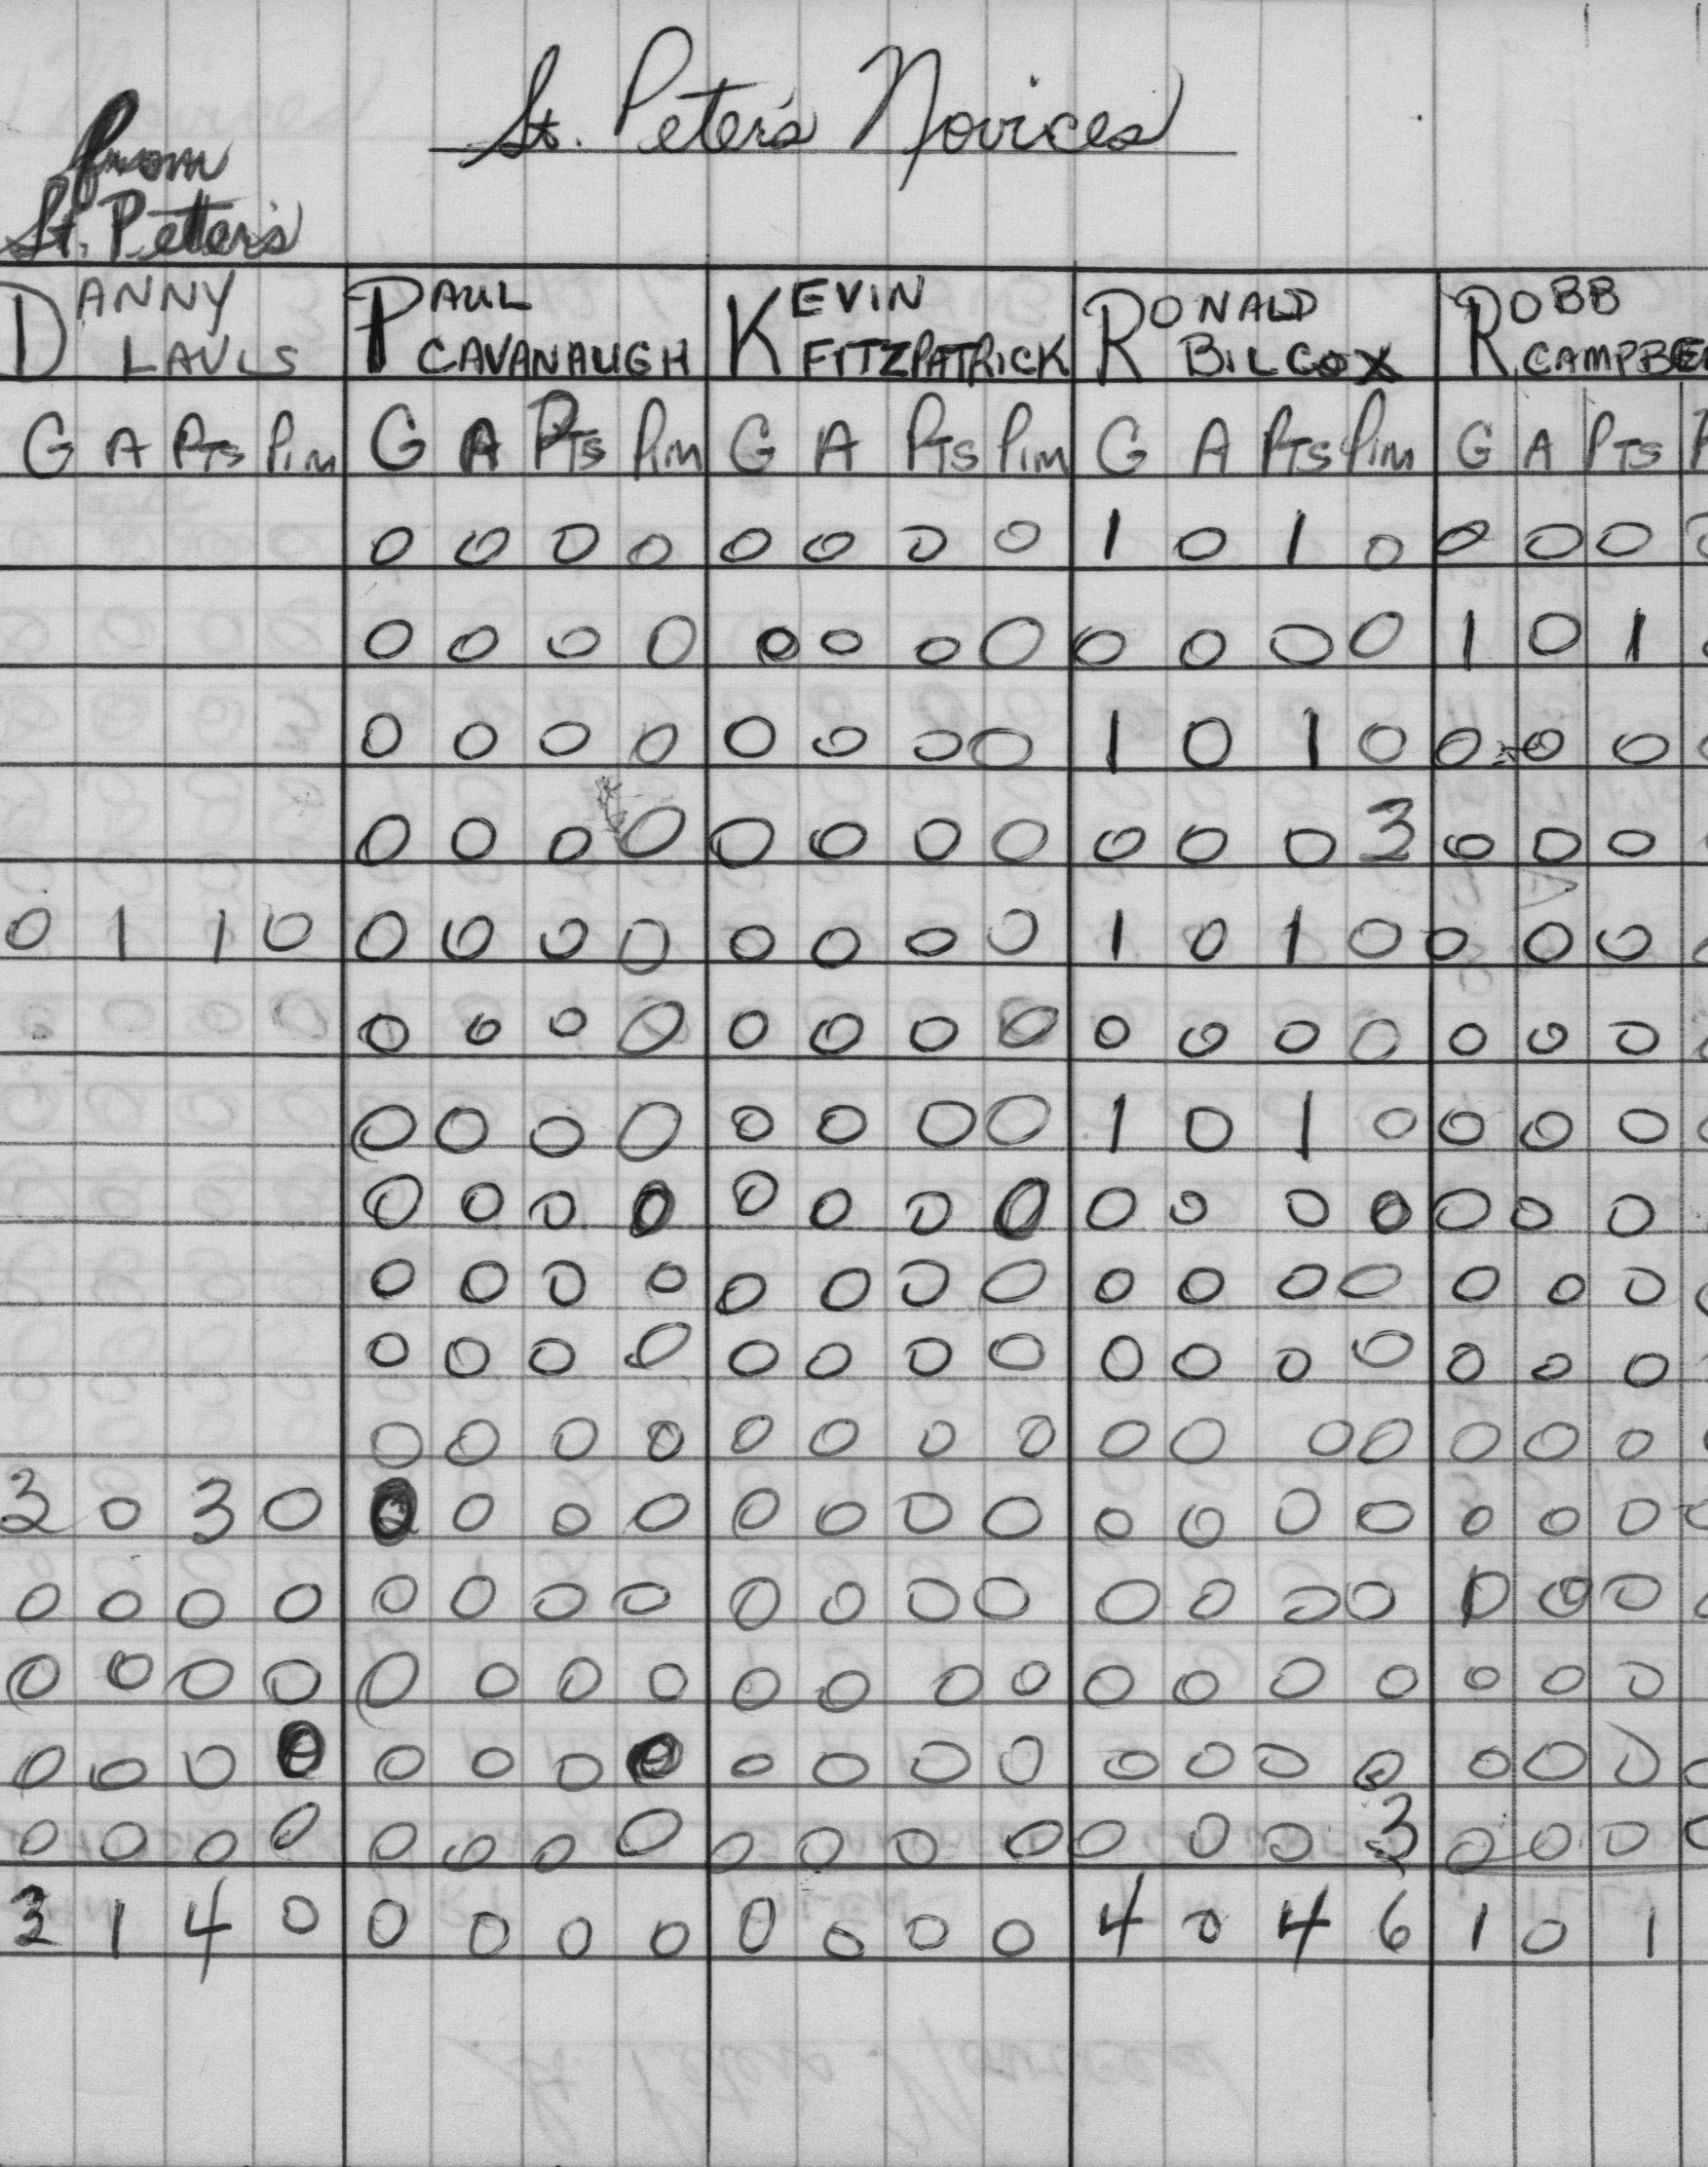 St. Peter's Novices
from
St. Petter's
DANNY PAUL KEVIN RONALD ROBB
LAVLS CAVANAUGH FITZPATRICK BILCOX
G A PTS PIM G A PTS PIM G A PTS PIM G A PTS PIM G A PTS
0 0 0 0 0 0 0 0 1 0 1 0 0 0 0
0 0 0 0 0 0 0 0 0 0 0 0 1 0 1
0 0 0 0 0 0 0 0 1 0 1 0 0 0 0
0 0 0 0 0 0 0 0 0 0 0 3 0 0 0
0 1 1 0 0 0 0 0 0 0 0 0 1 0 1 0 0 0 0
0 0 0 0 0 0 0 0 0 0 0 0 0 0 0
0 0 0 0 0 0 0 0 1 0 1 0 0 0 0
0 0 0 0 0 0 0 0 0 0 0 0 0 0 0
0 0 0 0 0 0 0 0 0 0 0 0 0 0 0
0 0 0 0 0 0 0 0 0 0 0 0 0 0 0
0 0 0 0 0 0 0 0 0 0 0 0 0 0 0
3 0 3 0 0 0 0 0 0 0 0 0 0 0 0 0 0 0 0
0 0 0 0 0 0 0 0 0 0 0 0 0 0 0 0 0 0 0
0 0 0 0 0 0 0 0 0 0 0 0 0 0 0 0 0 0 0
0 0 0 0 0 0 0 0 0 0 0 0 0 0 0 0 0 0 0
0 0 0 0 0 0 0 0 0 0 0 0 0 0 0 3 0 0 0
3 1 4 0 0 0 0 0 0 0 0 0 4 0 4 6 1 0 1